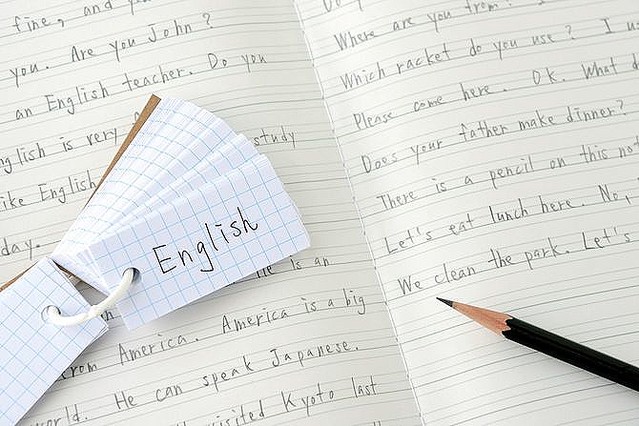 fine, and you
you. Are you John?
an English teacher. Do you
English is very
study
like English
day.
English
He is an
from America. America is a big
world. He can speak Japanese.
visited Kyoto last
Do
Where are you from? I
Which racket do you use? I u
Please come here. OK. What d
Does your father make dinner?
There is a pencil on this not
Let's eat lunch here. No,
We clean the park. Let's